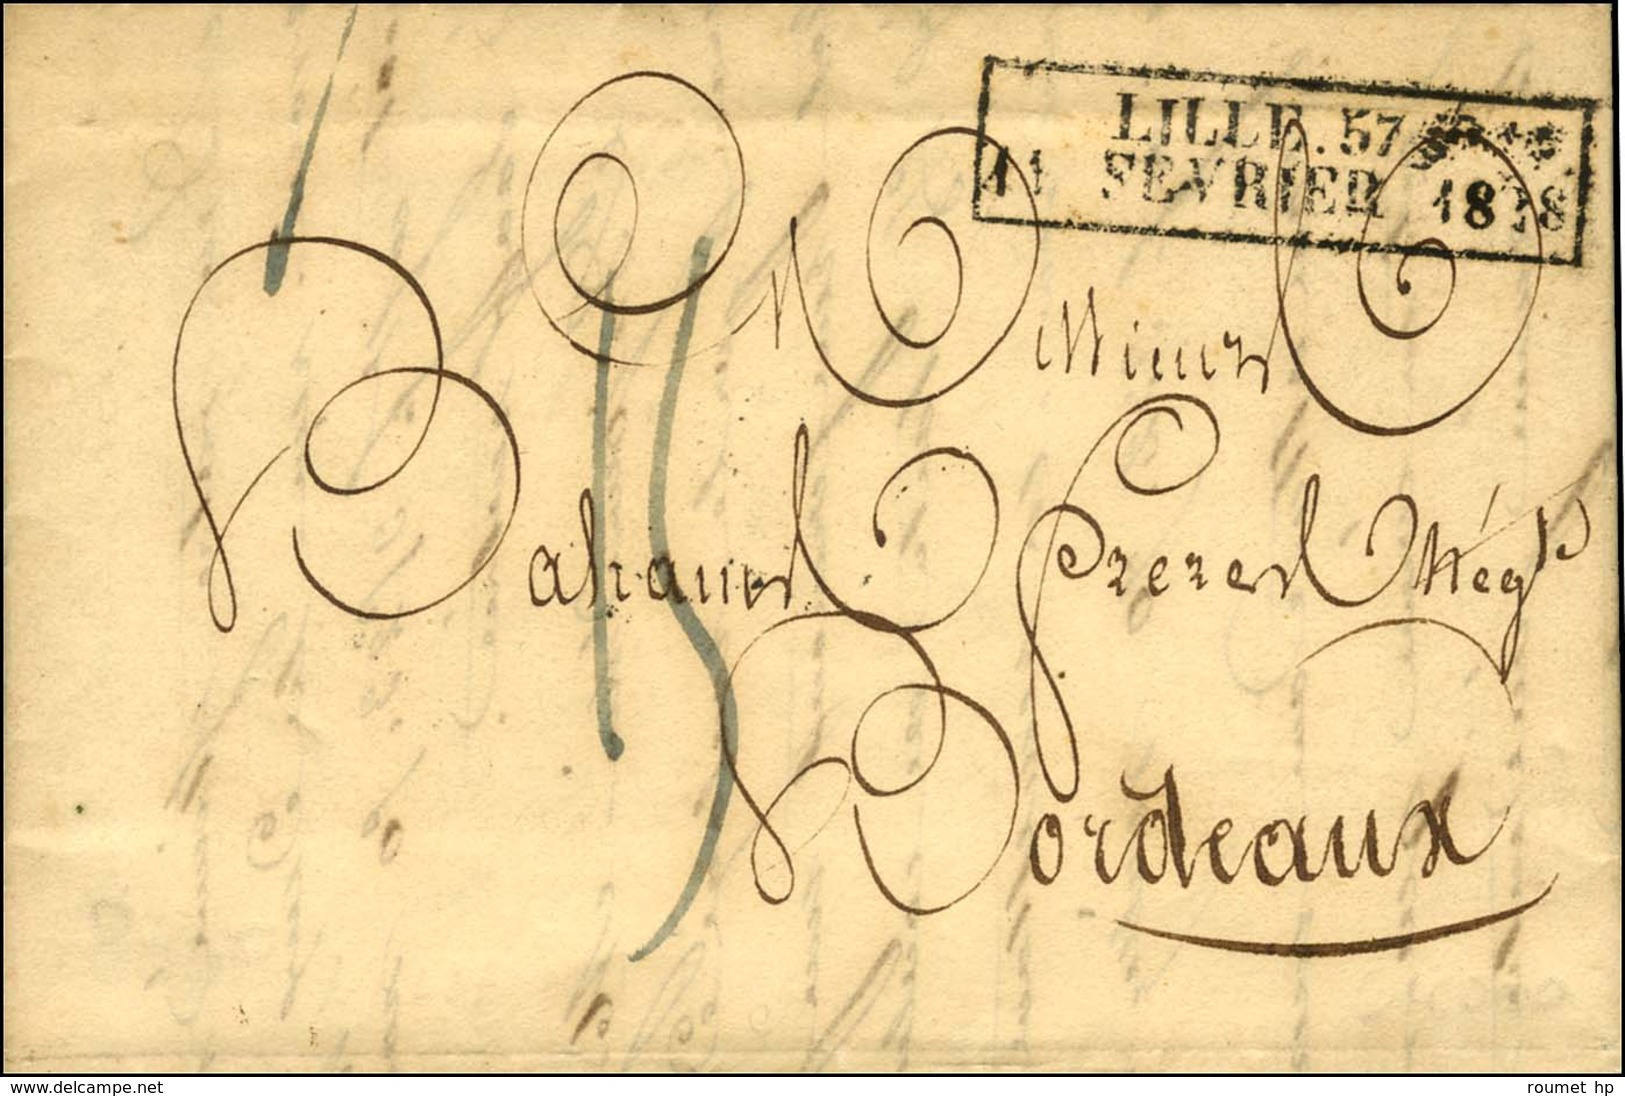 LILLE. 57
11 FEVRIER 1828
Messieurs
Bahans Freres Nég.ts
Bordeaux
15
www.delcampe.net
roumet hp